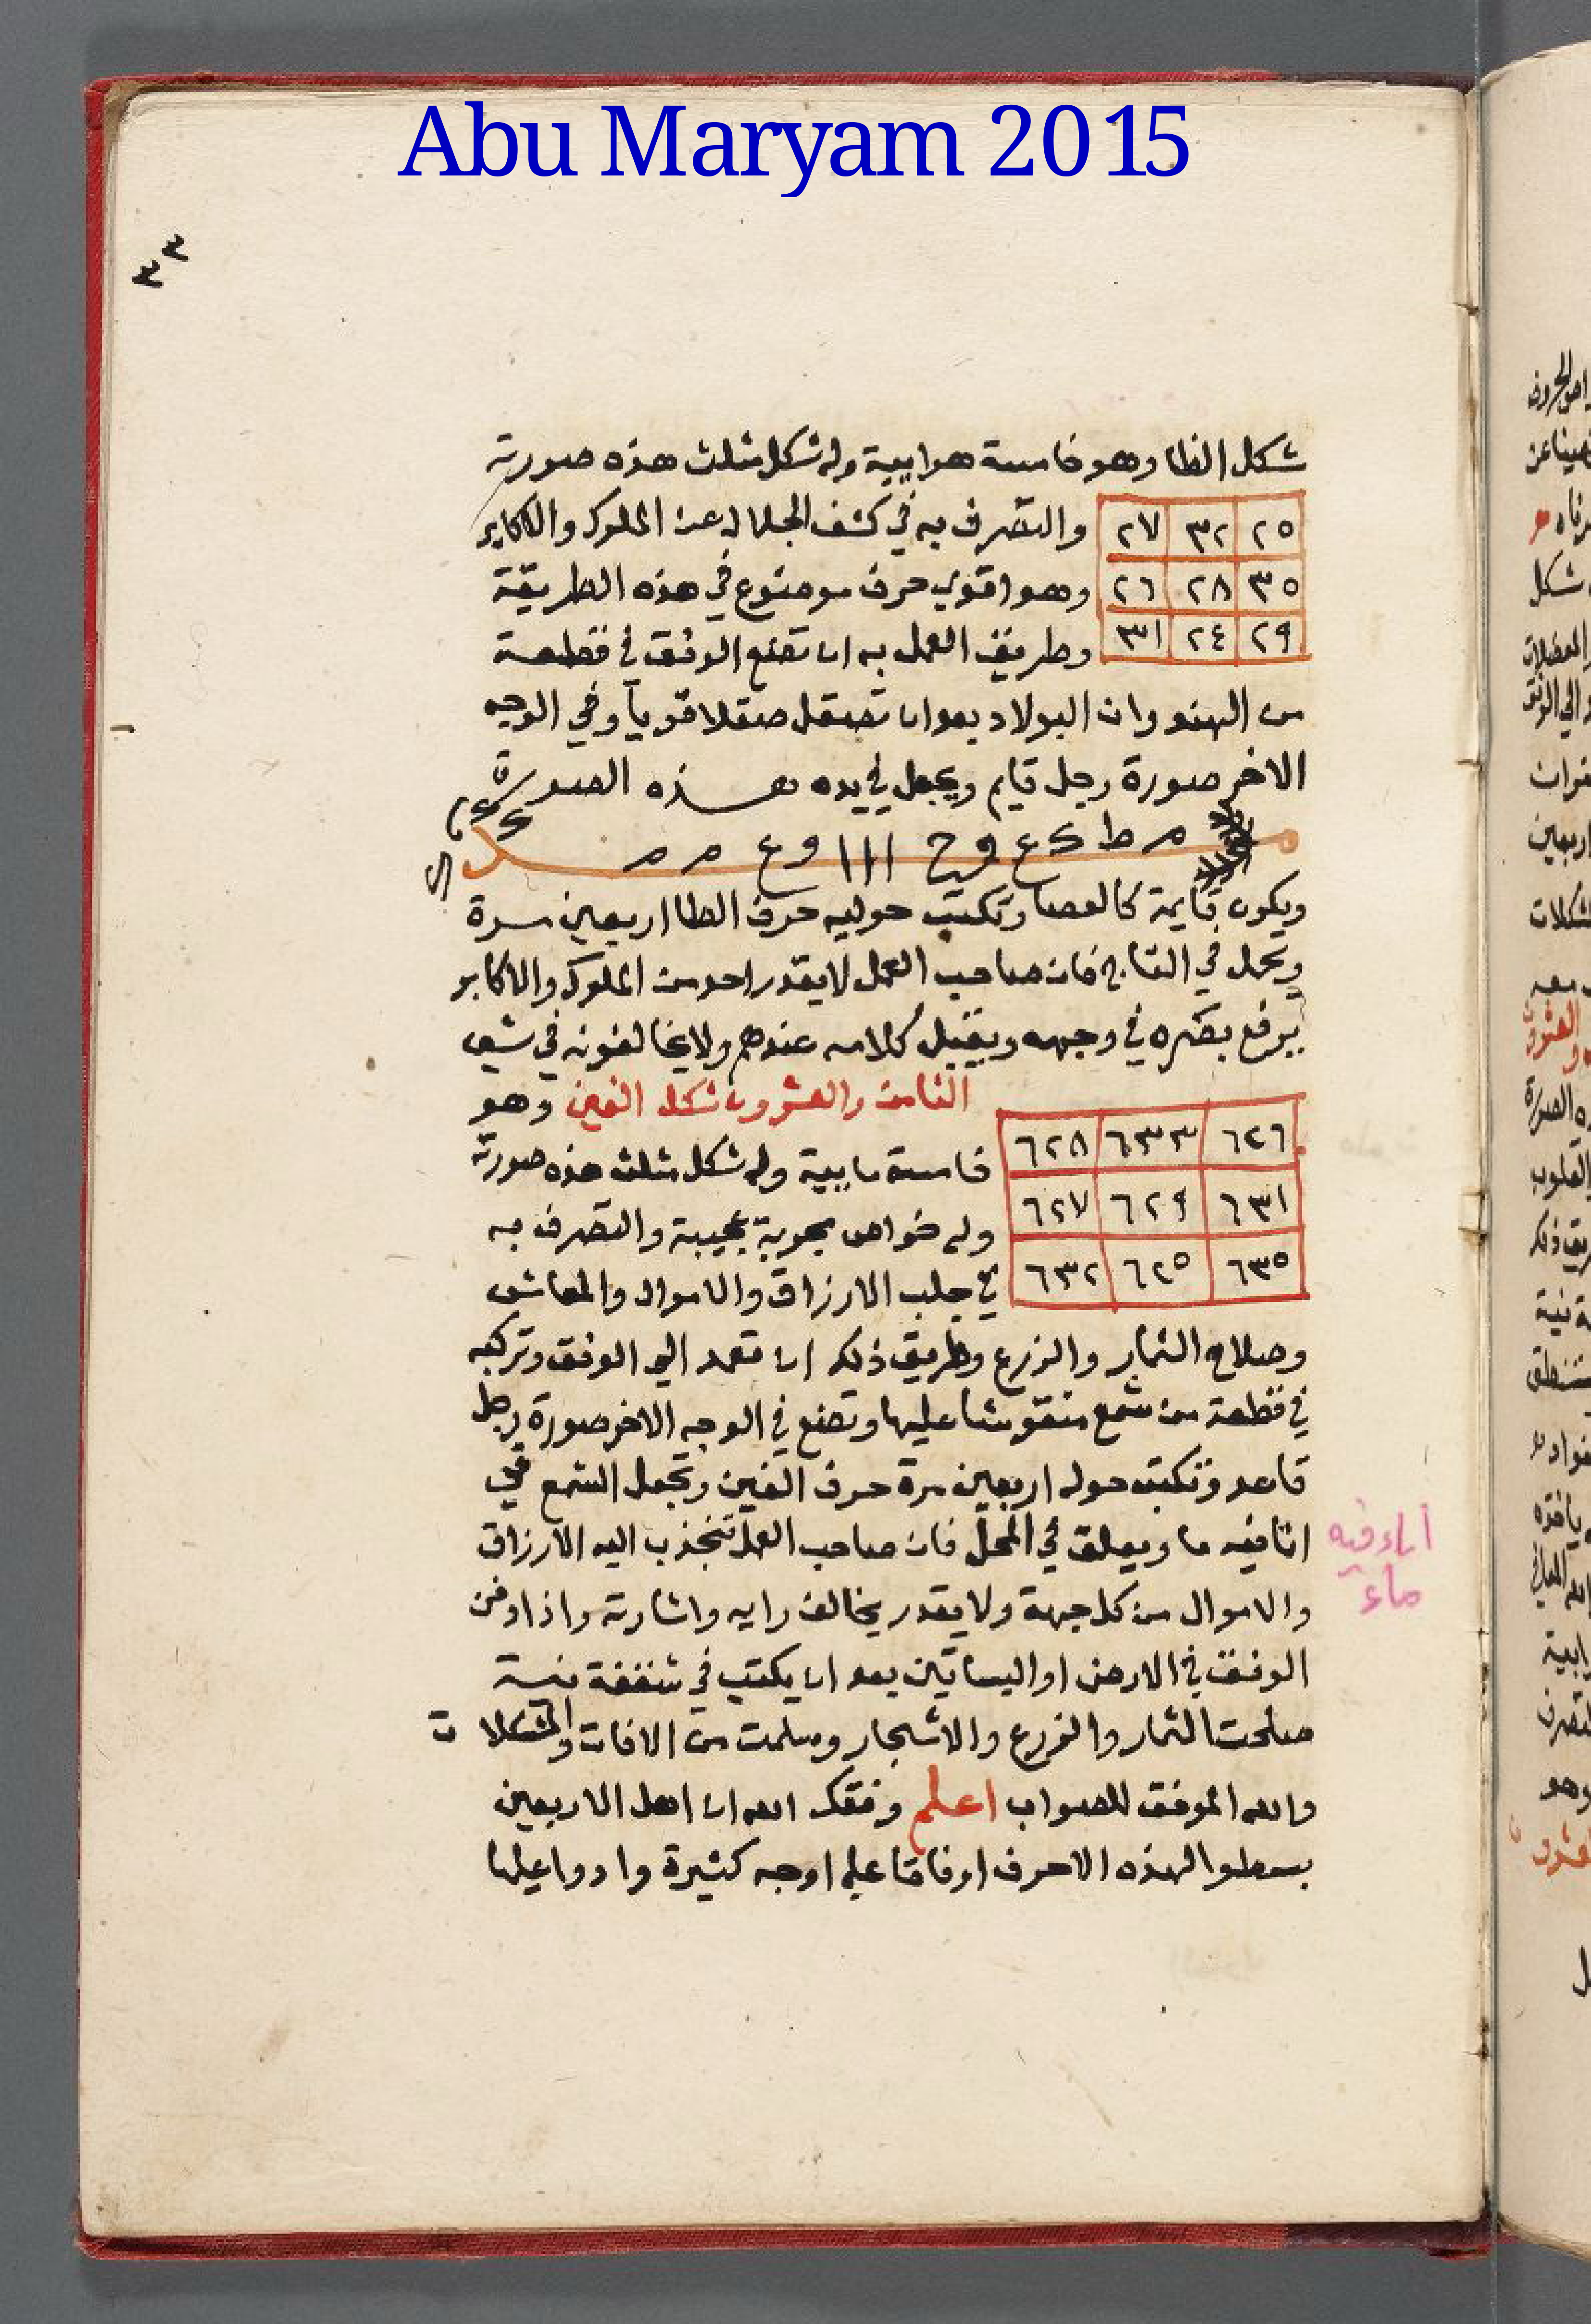 Abu Maryam 2015
٣٣
شكل الظا وهو خامسة هوايية وله شكل مثلث هذه صورته
٢٥ ٣٢ ٢٧
والتصرف به في كشف الجلال عند الملوك والاكابر
٣٥ ٢٨ ٢٦
وهو اقوي حرف موضوع في هذه الطريقة
٢٩ ٢٤ ٣١
وطريق العمل به ان تضع الوفق في قطعة
من الهندوان البولاد بعد ان تصقل صقلا قويا وفي الوجه
الاخر صورة رجل قايم ويجعل في يده هذه الصورة
ويكون قايمة كالعصا وتكتب حوليه حرف الظا اربعين مرة
وتحمل في التاج فان صاحب العمل لا يقدر احد من الملوك والاكابر
يرفع بصره في وجهه ويقبل كلامه عندهم ولا يخالفونه في شي
الثامن والعشرون شكل الغين وهو
٦٢٦ ٦٣٣ ٦٢٨
خامسة مايية وله شكل مثلث هذه صورته
٦٣١ ٦٢٩ ٦٢٧
وله خواص مجربة عجيبة والتصرف به
٦٣٥ ٦٢٥ ٦٣٢
في جلب الارزاق والاموال والمعاش
وصلاح الثمار والزرع وطريق ذلك ان تعمد الي الوفق وتركبه
في قطعة من شمع منقوشا عليها وتصنع في الوجه الاخر صورة رجل
قاعد وتكتب حوله اربعين مرة حرف الغين وتجعل الشمع في
انا فيه ما ويعلق في المحل فان صاحب العمل تنجذب اليه الارزاق
اناء فيه
ماء
والاموال من كل جهة ولا يقدر يخالف رايه واشارته واذا دفن
الوفق في الارض او البساتين بعد ان يكتب في شقفة
صلحت الثمار والزرع والاشجار وسلمت من الافات والمشكلات
والله الموفق للصواب اعلم وفقك الله ان اهل الاربعين
بسطوا لهذه الاحرف اوفاقا علي اوجه كثيرة وادوا عليها